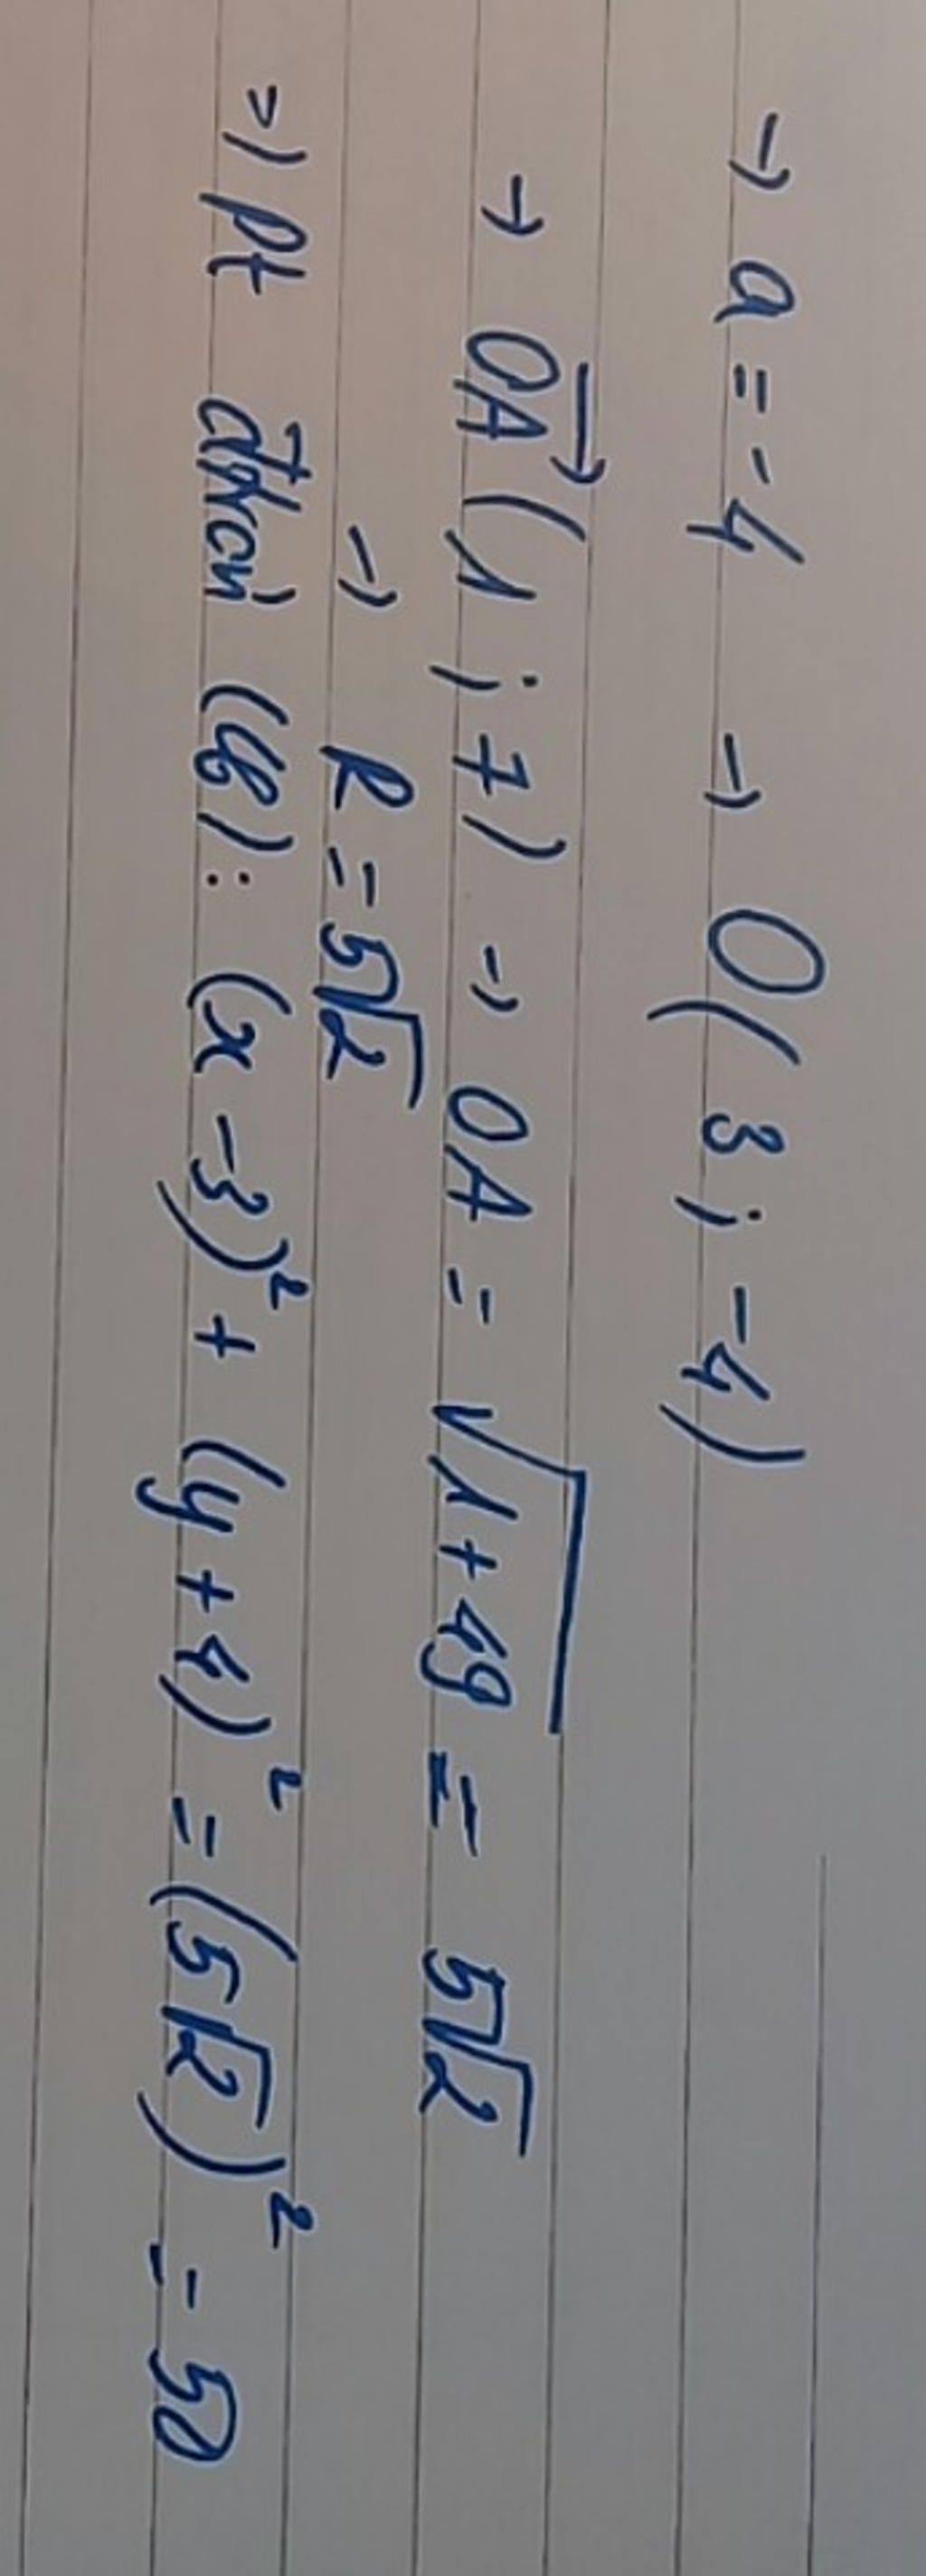 → a = -4 → O(3; -4)
→ \overrightarrow{OA}(1; 7) → OA = √(1+49) = 5√2
→ R = 5√2
=) pt đtròn (C): (x-3)² + (y+4)² = (5√2)² = 50